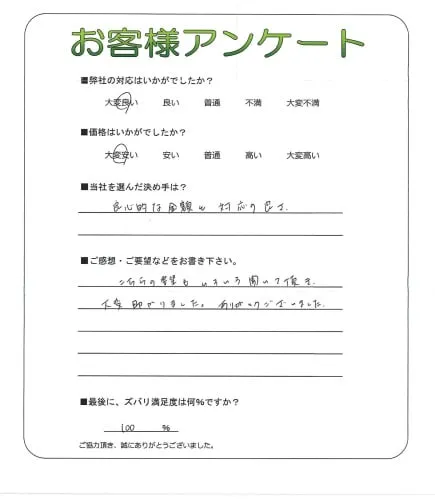 お客様アンケート
■弊社の対応はいかがでしたか？
大変良い 良い 普通 不満 大変不満
■価格はいかがでしたか？
大変安い 安い 普通 高い 大変高い
■当社を選んだ決め手は？
良心的な金額と対応の良さ
■ご感想・ご要望などをお書き下さい。
こちらの要望もいろいろ聞いて頂き、
大変助かりました。ありがとうございました。
■最後に、ズバリ満足度は何%ですか？
100 %
ご協力頂き、誠にありがとうございました。